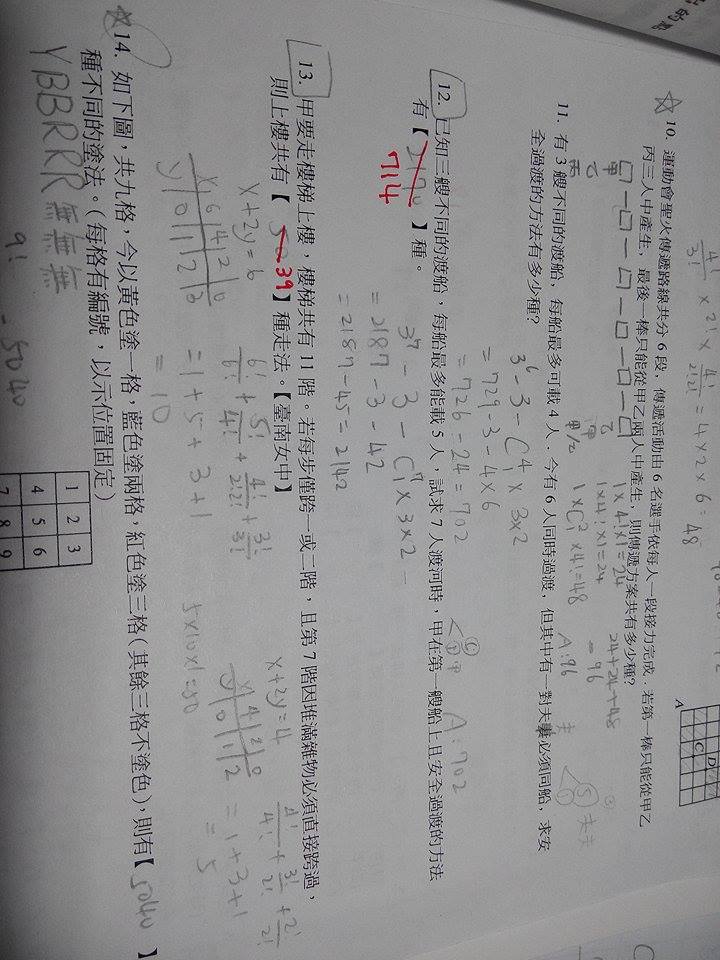 10. 運動會聖火傳遞路線共分 6 段，傳遞活動由 6 名選手依每人一段接力完成．若第一棒只能從甲乙
丙三人中產生，最後一棒只能從甲乙兩人中產生，則傳遞方案共有多少種？
1×4!×1=24
1×4!×1=24
1×C²₁×4!=48
24+24+48
=96
A:96
11. 有 3 艘不同的渡船，每船最多可載 4 人．今有 6 人同時過渡，但其中有一對夫妻必須同船，求安
全過渡的方法有多少種？
3⁶-3-C⁴₁×3×2
=729-3-4×6
=726-24=702
A:702
12. 已知三艘不同的渡船，每船最多能載 5 人，試求 7 人渡河時，甲在第一艘船上且安全過渡的方法
有【 】種。
714
3⁷-3-C⁷₁×3×2
=2187-3-42
=2187-45=2142
13. 甲要走樓梯上樓，樓梯共有 11 階。若每步僅跨一或二階，且第 7 階因堆滿雜物必須直接跨過，
則上樓共有【 39 】種走法。【臺南女中】
x+2y=6
x 6 4 2 0
y 0 1 2 3
6!/6!+5!/4!+4!/2!2!+3!/3!
=1+5+3+1
=10
x+2y=4
x 4 2 0
y 0 1 2
4!/4!+3!/2!+2!/2!
=1+3+1
=5
5×10×1=50
14. 如下圖，共九格，今以黃色塗一格，藍色塗兩格，紅色塗三格(其餘三格不塗色)，則有【 5040 】
種不同的塗法。(每格有編號，以示位置固定)
YBBRRR無無無
9!
=5040
1 2 3
4 5 6
7 8 9